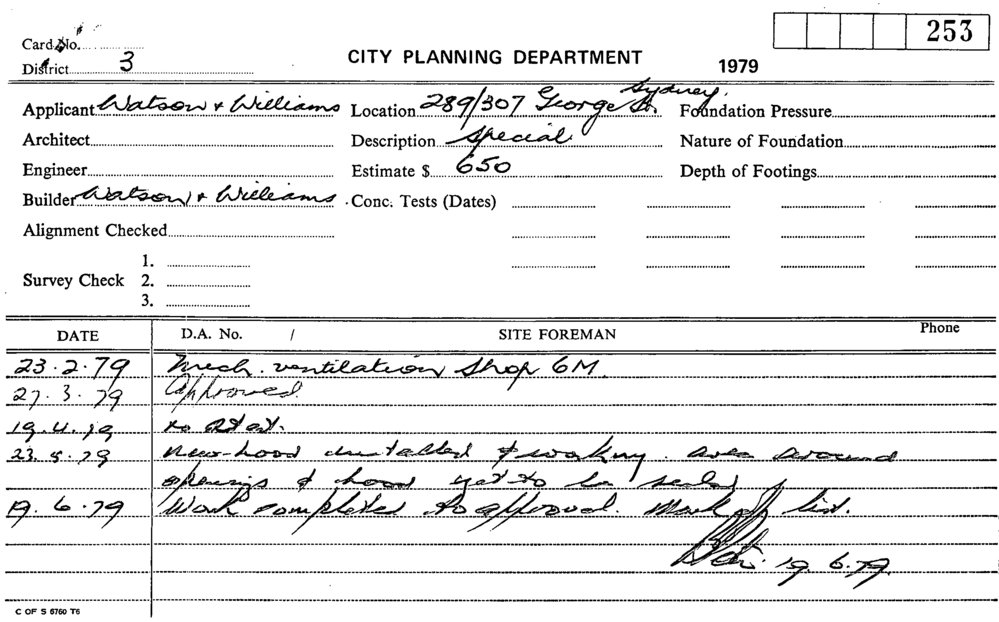 253
Card No.
CITY PLANNING DEPARTMENT
District 3
1979
Applicant Watson & Williams
Location 289/307 George St. Sydney.
Foundation Pressure
Architect
Description Special.
Nature of Foundation
Engineer
Estimate $ 650
Depth of Footings
Builder Watson & Williams.
Conc. Tests (Dates)
Alignment Checked
1.
Survey Check 2.
3.
DATE D.A. No. / SITE FOREMAN Phone
23.2.79 Mech. ventilation Shop 6M.
27.3.79 Approved.
19.4.79 to start.
23.5.79 New hood installed & working. area around
openings & hood yet to be sealed
19.6.79 Work completed to approval. Mark off list.
19.6.79.
C OF S 6760 T6